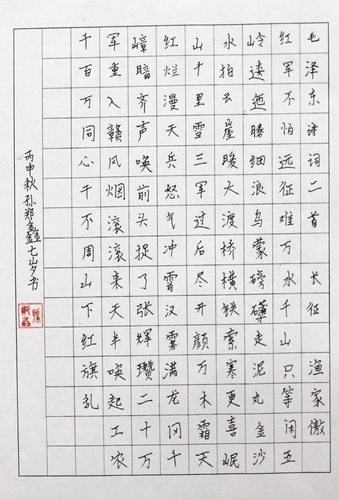 毛泽东诗词二首 长征 渔家傲
红军不怕远征难万水千山只等闲五
岭逶迤腾细浪乌蒙磅礴走泥丸金沙
水拍云崖暖大渡桥横铁索寒更喜岷
山千里雪三军过后尽开颜万木霜天
红烂漫天兵怒气冲霄汉雾满龙冈千
嶂暗齐声唤前头捉了张辉瓒二十万
军重入赣风烟滚滚来天半唤起工农
千百万同心干不周山下红旗乱
丙申秋孙郑鑫七岁书